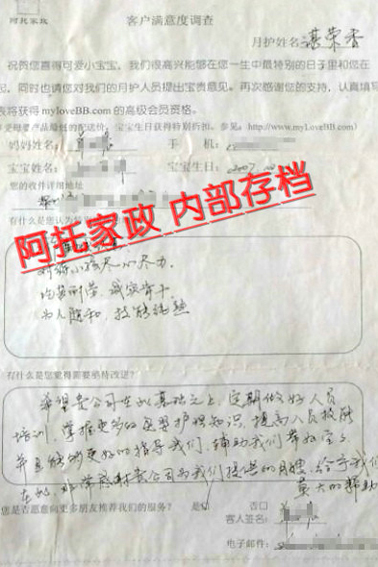 阿托家政
客户满意度调查
月护姓名 谌荣香
祝贺您喜得可爱小宝宝。我们很高兴能够在您一生中最特别的日子里和您在
起，同时也请您对我们的月护人员提出宝贵意见。再次感谢您的支持，认真填写
表将获得 myloveBB.com 的高级会员资格。
享受母婴产品最低的配送价，宝宝生日获得特别折扣。参见：http://www.myloveBB.com
妈妈姓名： 手 机：
宝宝姓名 宝宝生日：2007.
您的收件详细地址
阿托家政 内部存档
有什么是您认为
对待小孩尽心尽力，
均苦耐劳，诚实肯干
为人随和，技能娴熟
有什么是您觉得需要给待改进？
希望贵公司在此基础之上，定期做好人员
培训，掌握更多的母婴护理知识，提高人员技能
并且能够更好的指导我们，辅助我们养好宝宝
在此，非常感谢贵公司为我们提供的月嫂，给予我们
莫大的帮助
您是否愿意向更多朋友推荐我们的服务？ 是 否口
客人签名：
电子邮件：